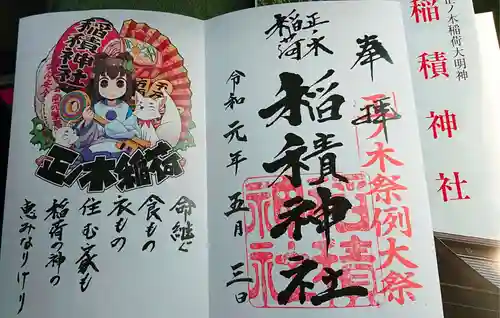 正ノ木稲荷大明神
稲積神社
奉拝
正ノ木祭例大祭
正ノ木
稲荷
稲積神社
令和元年五月三日
稲積神社
正ノ木稲荷
命継ぐ
食もの
衣もの
住む家も
稲荷の神の
恵みなりけり